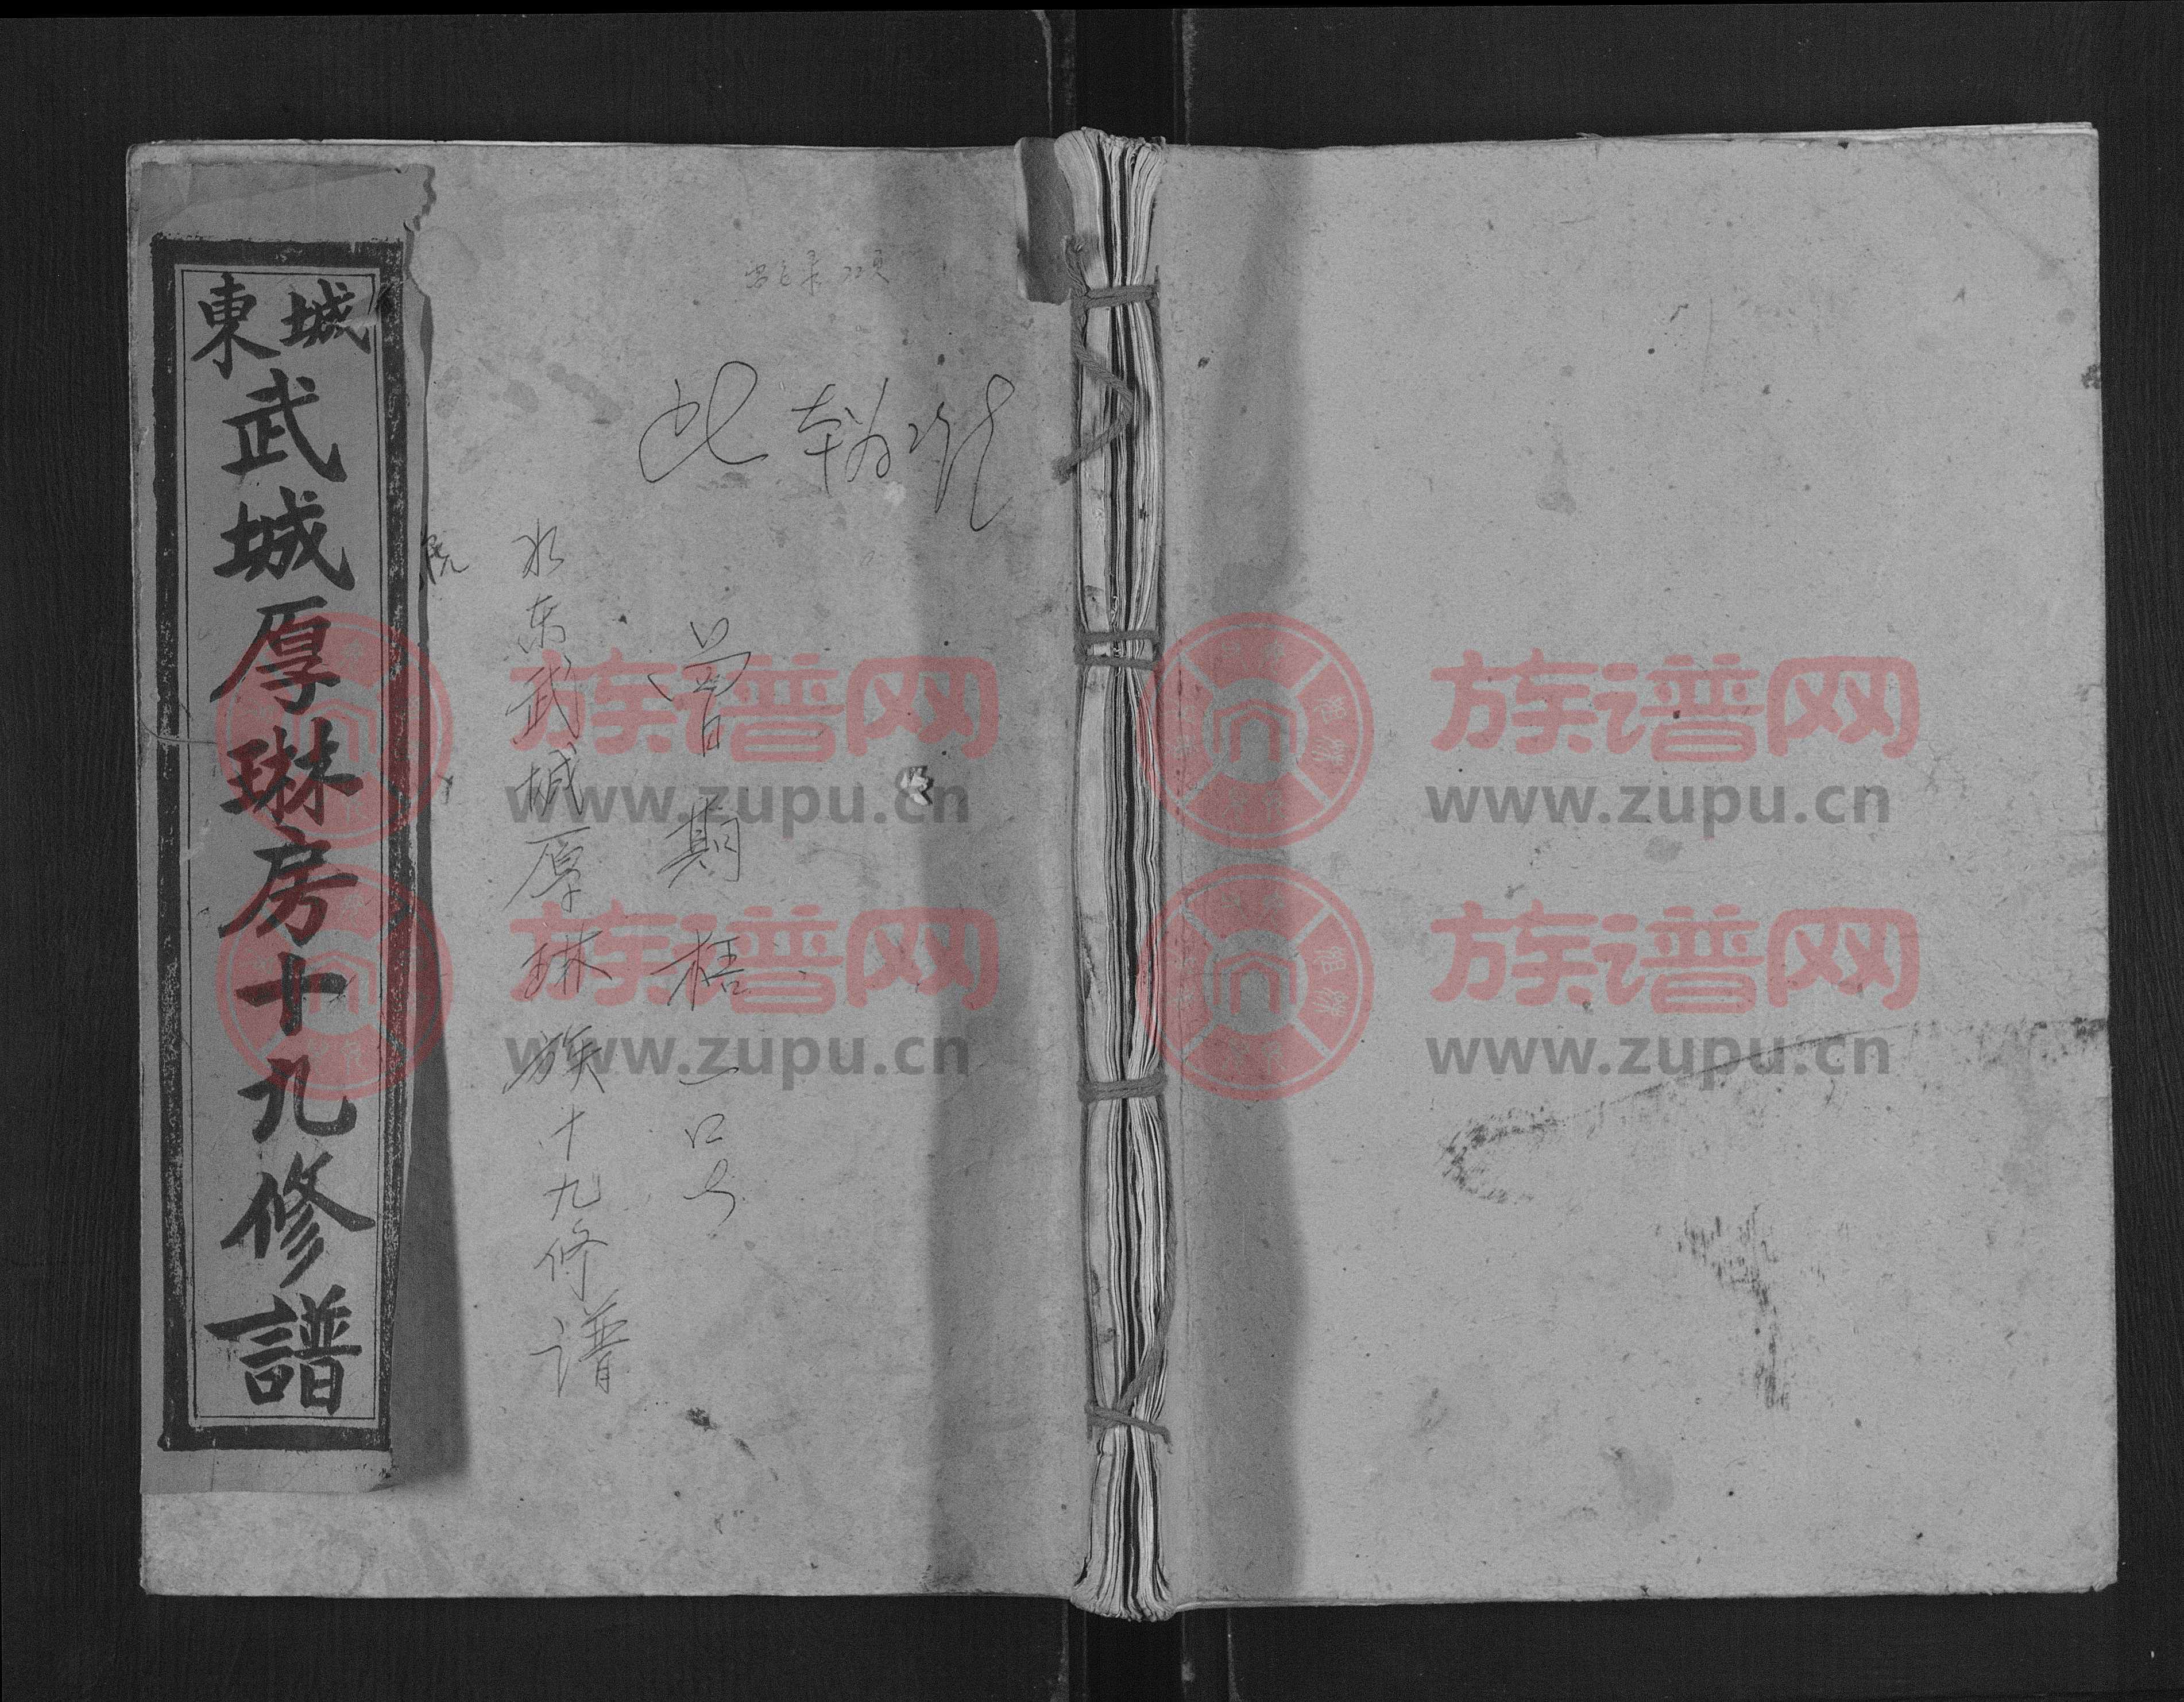 城東
武城厚琳房十九修譜
曾期梧
水东武城厚琳族十九修谱
族谱网
www.zupu.cn
族谱网
www.zupu.cn
族谱网
www.zupu.cn
族谱网
www.zupu.cn